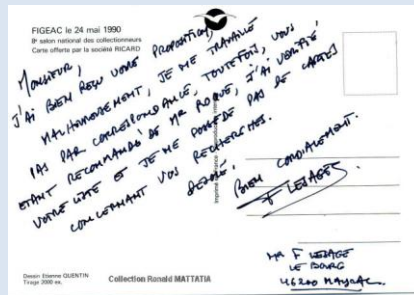 FIGEAC le 24 mai 1990
8e salon national des collectionneurs
Carte offerte par la société RICARD
MONSIEUR,
J'AI BIEN REÇU VOTRE PROPOSITION,
MALHEUREUSEMENT, JE NE TRAVAILLE
PAS PAR CORRESPONDANCE, TOUTEFOIS, VOUS
ETANT RECOMMANDÉ DE MR ROQUE, J'AI VERIFIÉ
VOTRE LISTE ET JE NE POSSEDE PAS DE CARTES
CONCERNANT VOS RECHERCHES.
DESOLÉ,
BIEN CORDIALEMENT.
F LESAGE
MR F LESAGE
LE BOURG
46200
Dessin Etienne QUENTIN
Tirage 2000 ex.
Collection Ronald MATTATIA